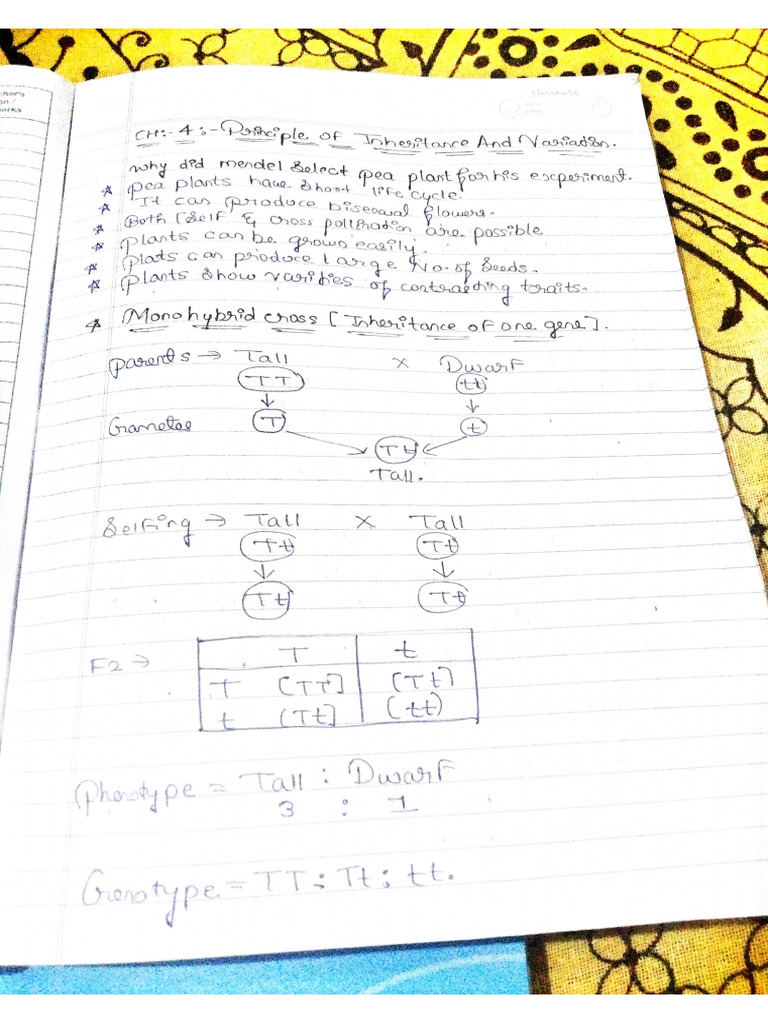 CH:- 4 :- Principle of Inheritance And Variation.
why did mendel select pea plant for his experiment.
☆ pea plants have short life cycle.
☆ It can produce bisexual flowers.
☆ Both [self & cross pollination are possible
☆ plants can be grown easily.
☆ plats can produce large No. of seeds.
☆ plants show varities of contrasting traits.
☆ Monohybrid cross [Inheritance of one gene].
parents → Tall x Dwarf
TT tt
Gametes T t
Tt
Tall.
Selfing → Tall x Tall
Tt Tt
Tt Tt
F2 → T t
T [TT] [Tt]
t (Tt] (tt)
Phenotype = Tall : Dwarf
3 : 1
Genotype = TT : Tt : tt.